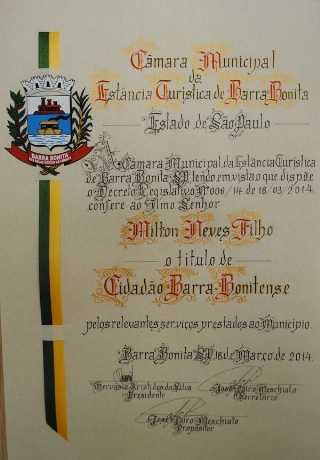 Câmara Municipal
da
Estância Turística de Barra Bonita
Estado de São Paulo
BARRA BONITA
A Câmara Municipal da Estância Turística
de Barra Bonita-SP, tendo em vista o que dispõe
o Decreto Legislativo Nº 006/14 de 18/03/2014,
confere ao Ilmo. Senhor
Milton Neves Filho
o título de
Cidadão Barra-Bonitense
pelos relevantes serviços prestados ao Município.
Barra Bonita, SP, 18 de Março de 2014.
Gervásio Aristides da Silva
Presidente
José Jairo Meschiato
Secretário
José Jairo Meschiato
Propositor